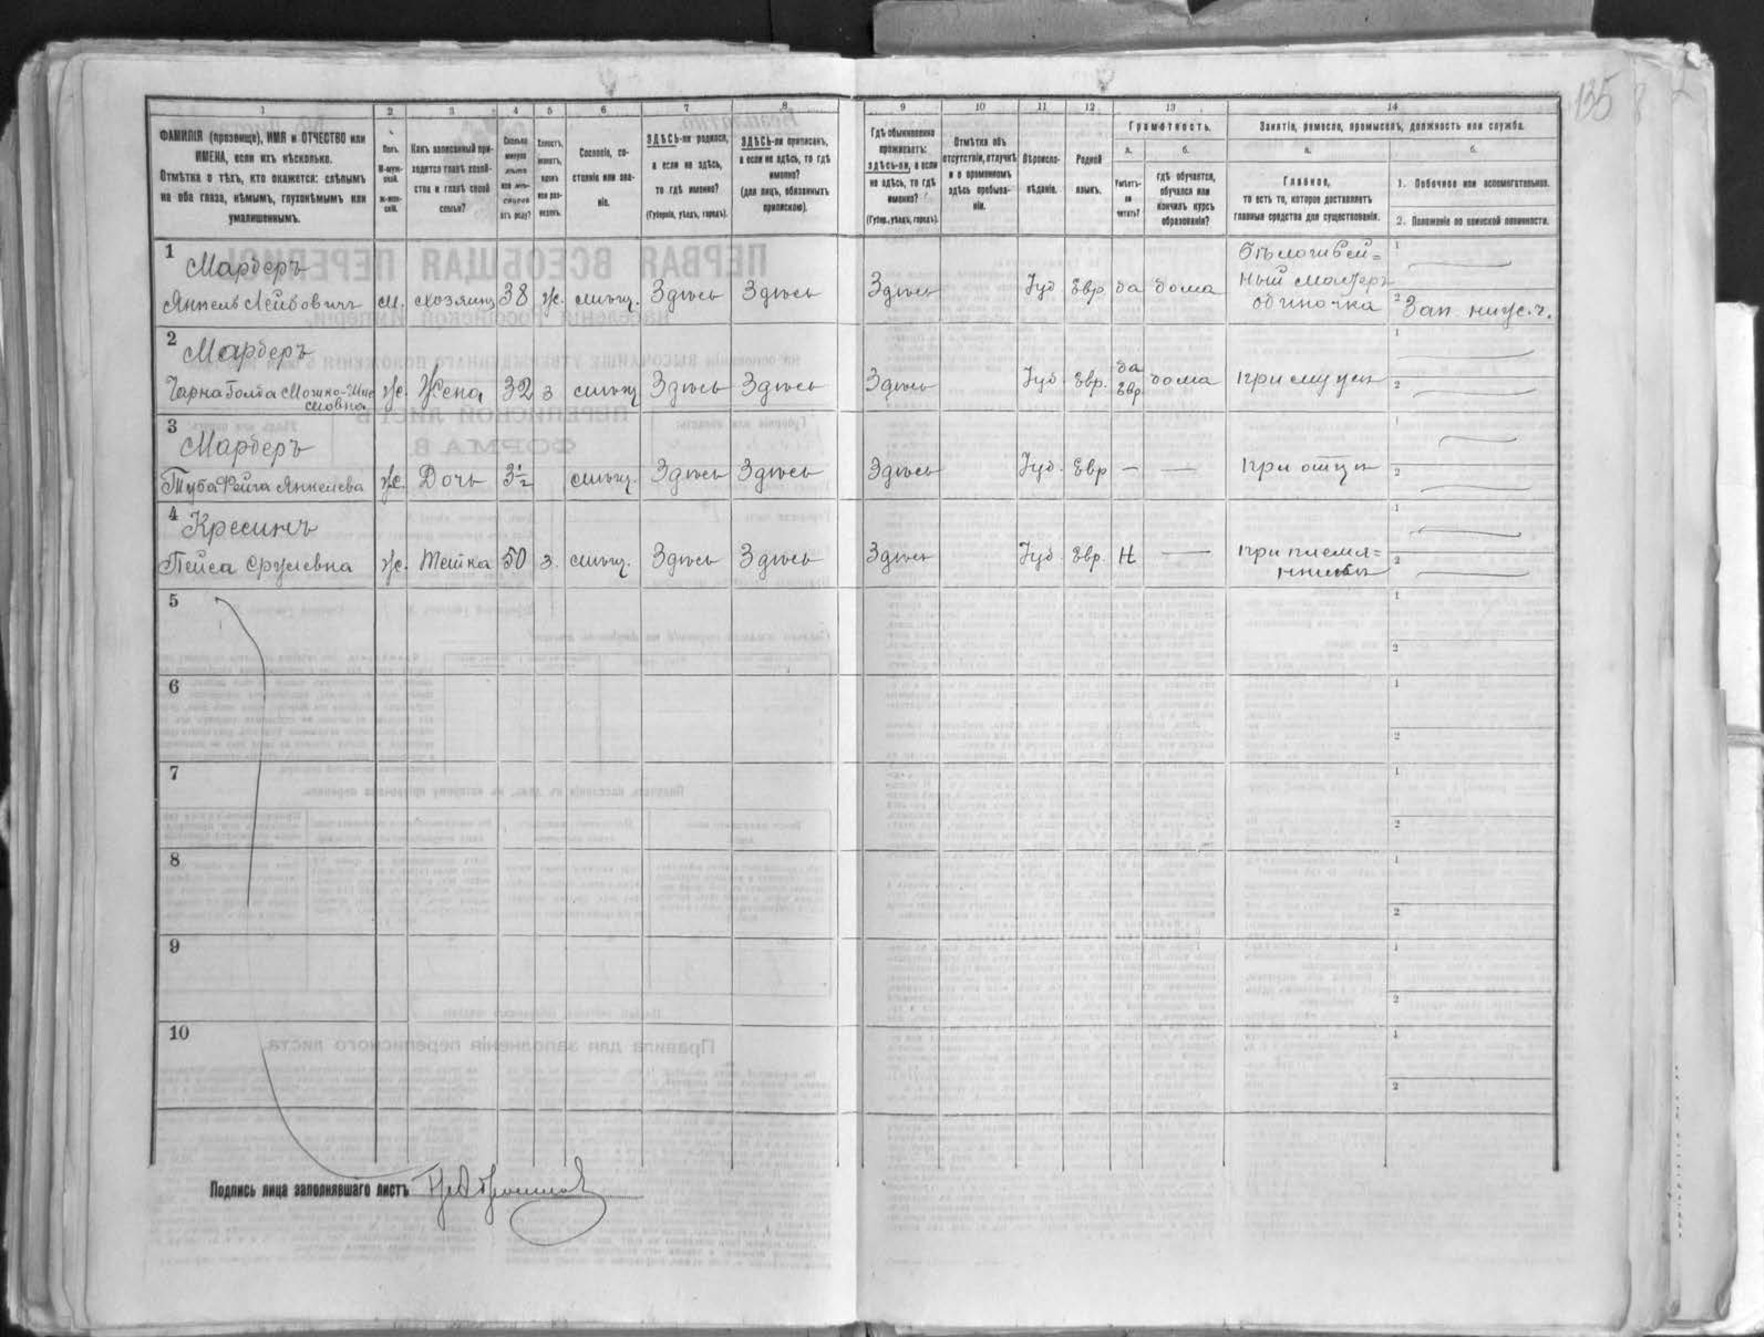 135
1 2 3 4 5 6 7 8 9 10 11 12 13 14
ФАМИЛІЯ (прозвище), ИМЯ и ОТЧЕСТВО или
ИМЕНА, если ихъ нѣсколько.
Отмѣтка о тѣхъ, кто окажется: слѣпымъ
на оба глаза, нѣмымъ, глухонѣмымъ или
умалишеннымъ.
Полъ.
М-муж-
ской.
Ж-жен-
скій.
Какъ записанный при-
ходится главѣ хозяй-
ства и главѣ своей
семьи?
Сколько
минуло
лѣтъ
или мѣ-
сяцевъ
отъ роду?
Холостъ,
женатъ,
вдовъ
или раз-
веденъ.
Сословіе, со-
стояніе или зва-
ніе.
ЗДѢСЬ-ли родился,
а если не здѣсь,
то гдѣ именно?
(Губернія, уѣздъ, городъ).
ЗДѢСЬ-ли приписанъ,
а если не здѣсь, то гдѣ
именно?
(для лицъ, обязанныхъ
припискою).
Гдѣ обыкновенно
проживаетъ:
здѣсь-ли, а если
не здѣсь, то гдѣ
именно?
(Губер., уѣздъ, городъ).
Отмѣтка объ
отсутствіи, отлучкѣ
и о временномъ
здѣсь пребыва-
ніи.
Вѣроиспо-
вѣданіе.
Родной
языкъ.
Грамотность.
а. б.
Умѣетъ-
ли
читать?
гдѣ обучается,
обучался или
кончилъ курсъ
образованія?
Занятіе, ремесло, промыселъ, должность или служба.
а. б.
Главное,
то есть то, которое доставляетъ
главныя средства для существованія.
1. Побочное или вспомогательное.
2. Положеніе по воинской повинности.
1 Марберъ
Янкель Лейбовичъ м. хозяинъ 38 ж. мѣщ. Здѣсь Здѣсь Здѣсь Іуд Евр да дома
Бѣлошвей=
ный мастеръ
одиночка
1
2 Зап. ниж. ч.
2 Марберъ
Голда Мошко-
ж. Жена 32 з мѣщ Здѣсь Здѣсь Здѣсь Іуд. Евр. да
Евр. дома при мужѣ
1
2
3 Марберъ
Туба Фейга Янкелева ж. Дочь 3½ мѣщ. Здѣсь Здѣсь Здѣсь Іуд. Евр — — при отцѣ
1
2
4 Кресинъ
Пейса Срулевна ж. Тетка 50 з. мѣщ. Здѣсь Здѣсь Здѣсь Іуд. Евр. Н — при племя=
нникѣ
1
2
5
1
2
6
1
2
7
1
2
8
1
2
9
1
2
10
1
2
Подпись лица заполнявшаго листъ